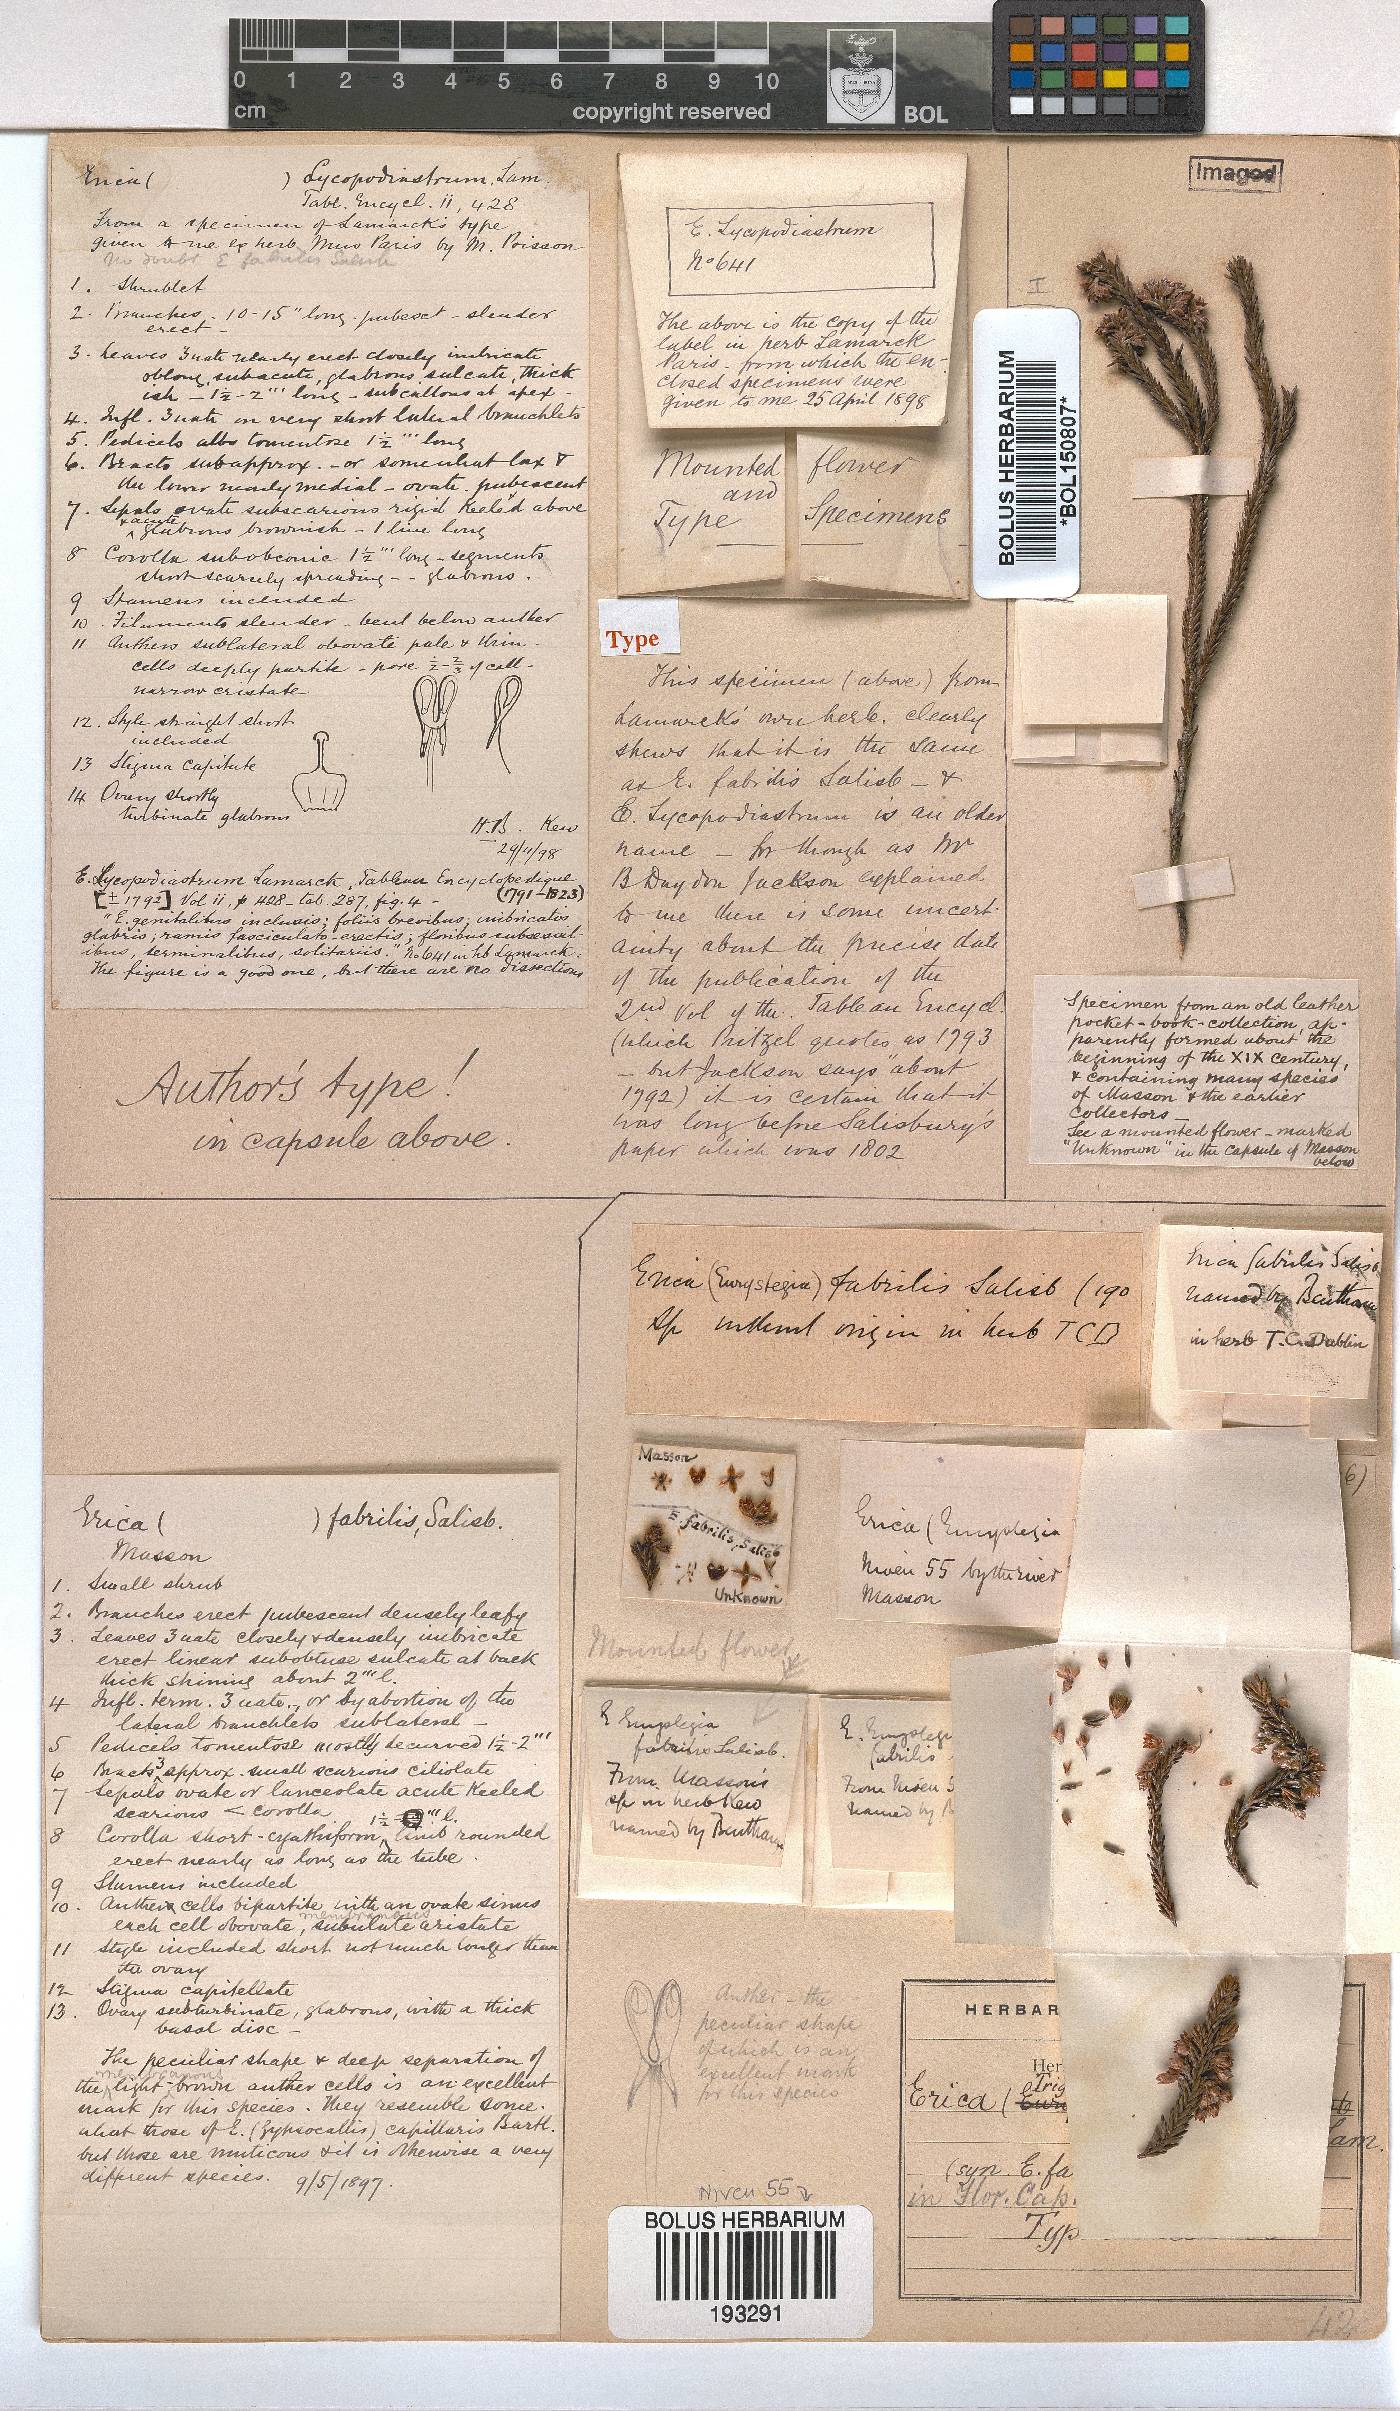 0 1 2 3 4 5 6 7 8 9 10
cm
copyright reserved
BOL
Imaged
Erica ( ) Lycopodiastrum, Lam.
Tabl. Encycl. II, 428
From a specimen of Lamarck's type
given to me ex herb Mus Paris by M. Poisson
No doubt E fabrilis Salisb
1. Shrublet
2. Branches - 10-15" long - pubesct - slender
erect -
3. Leaves 3nate nearly erect closely imbricate
oblong, subacute, glabrous sulcate, thick
ish - 1½-2''' long - subcallous at apex -
4. Infl. 3nate, on very short lateral branchlets
5. Pedicels albo tomentose 1½''' long
6. Bracts subapprox. - or somewhat lax &
the lower nearly medial - ovate pubescent
7. Sepals ovate subscarious rigid keeled above
& acute
glabrous brownish - 1 line long
8 Corolla subobconic 1½''' long - segments
short scarcely spreading - - glabrous.
9 Stamens included
10 Filaments slender - bent below anther
11 Anthers sublateral obovate pale & thin -
cells deeply partite - pore ½-⅔ of cell -
narrow cristate
12. Style straight short
included
13 Stigma capitate
14 Ovary shortly
turbinate glabrous
H.B. Kew
29/4/98
E. Lycopodiastrum Lamarck, Tableau Encyclopedique
[± 1792] Vol II, p 428 - tab. 287, fig. 4 - (1791-1823)
"E. genitalibus inclusis; foliis brevibus, imbricatis
glabris; ramis fasciculato-erectis; floribus subsessil-
ibus, terminalibus, solitariis." No 641 in hb Lamarck.
The figure is a good one, but there are no dissections
Author's type!
in capsule above.
E. Lycopodiastrum
No 641
The above is the copy of the
label in herb Lamarck
Paris - from which the en-
closed specimens were
given to me 25 April 1898
Mounted flower
and
Type Specimens
Type
This specimen (above) from
Lamarck's own herb. clearly
shews that it is the same
as E. fabrilis Salisb - &
E. Lycopodiastrum is an older
name - for though as Mr
B Daydon Jackson explained
to me there is some uncert-
ainty about the precise date
of the publication of the
2nd Vol of the Tableau Encycl.
(which Pritzel quotes as 1793
- but Jackson says "about
1792) it is certain that it
was long before Salisbury's
paper which was 1802
I
BOLUS HERBARIUM
*BOL150807*
Specimen from an old leather
pocket-book-collection, ap-
parently formed about the
beginning of the XIX century,
& containing many species
of Masson & the earlier
collectors -
See a mounted flower - marked
"Unknown" in the capsule of Masson
below
Erica (Eurystegia) fabrilis Salisb (190
Sp without origin in herb TCD
Erica fabrilis Salisb.
named by Bentham
in herb T.C. Dublin
Masson
E. fabrilis, Salisb
Unknown
Mounted flower
Erica (Eurystegia
Niven 55 by the river
Masson
6)
E Eurystegia
fabrilis Salisb.
From Masson's
sp in herb Kew
named by Bentham
E. Euryste
fabrilis
From Niven 5
named by B
Erica ( ) fabrilis, Salisb.
Masson
1. Small shrub
2. Branches erect pubescent densely leafy
3. Leaves 3nate closely & densely imbricate
erect linear subobtuse sulcate at back
thick shining about 2''' l.
4 Infl. term. 3nate, or by abortion of the
lateral branchlets sublateral -
5 Pedicels tomentose mostly decurved 1½-2'''
6 Bracts 3 approx. small scarious ciliolate
7 Sepals ovate or lanceolate acute keeled
scarious < corolla 1½''' l.
8 Corolla short-cyathiform, limb rounded
erect nearly as long as the tube.
9 Stamens included
10. Anther cells bipartite with an ovate sinus
each cell obovate, membranous subulate aristate
11 Style included short not much longer than
the ovary
12 Stigma capitellate
13. Ovary subturbinate, glabrous, with a thick
basal disc -
The peculiar shape & deep separation of
the membranous light-brown anther cells is an excellent
mark for this species. They resemble some-
what those of E. (Gypsocallis) capillaris Bartl.
but those are muticous & it is otherwise a very
different species. 9/5/1897.
Anther - the
peculiar shape
of which is an
excellent mark
for this species
Niven 55
BOLUS HERBARIUM
193291
HERBAR
Her
Trig
Erica (Eury
Lam.
(syn. E. fa
in Flor. Cap.
Typ
42